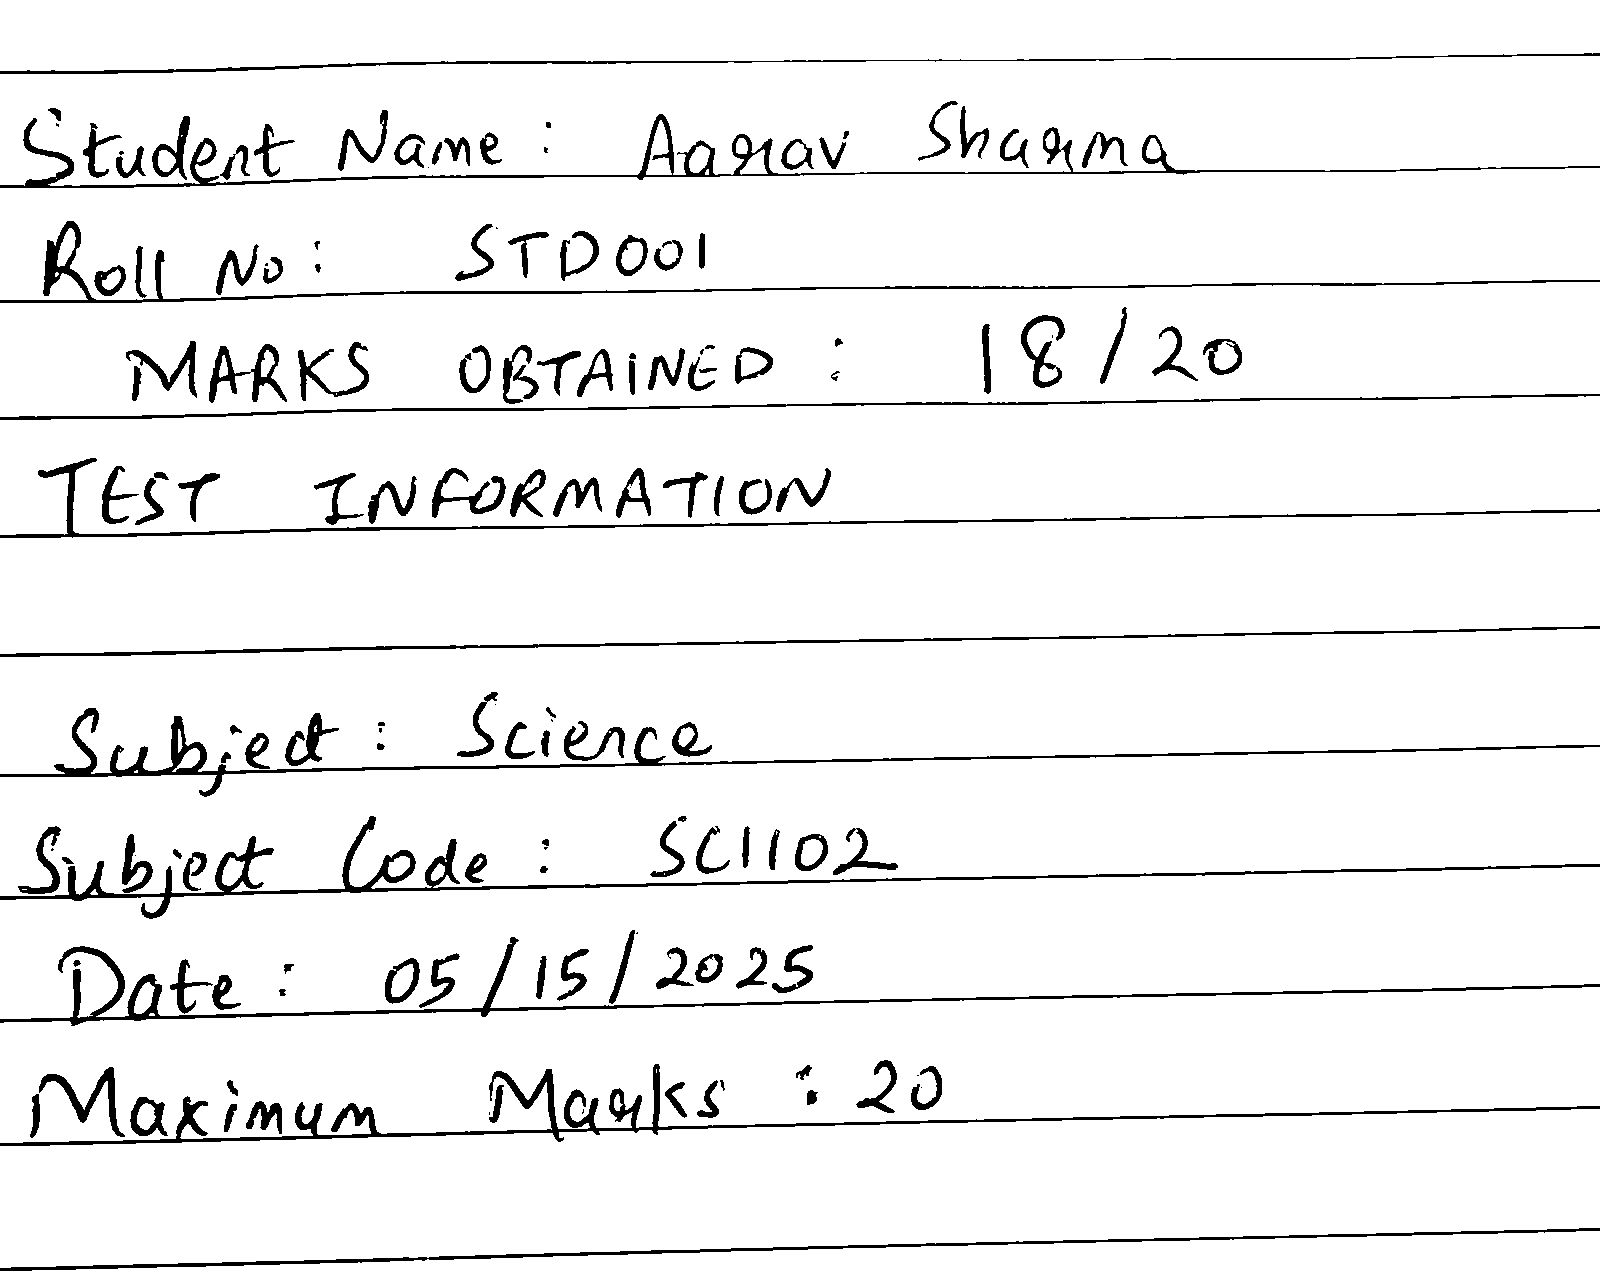 Student Name : Aarav Sharma
Roll No : STD001
MARKS OBTAINED : 18/20
TEST INFORMATION
Subject : Science
Subject Code : SCI102
Date : 05/15/2025
Maximum Marks : 20